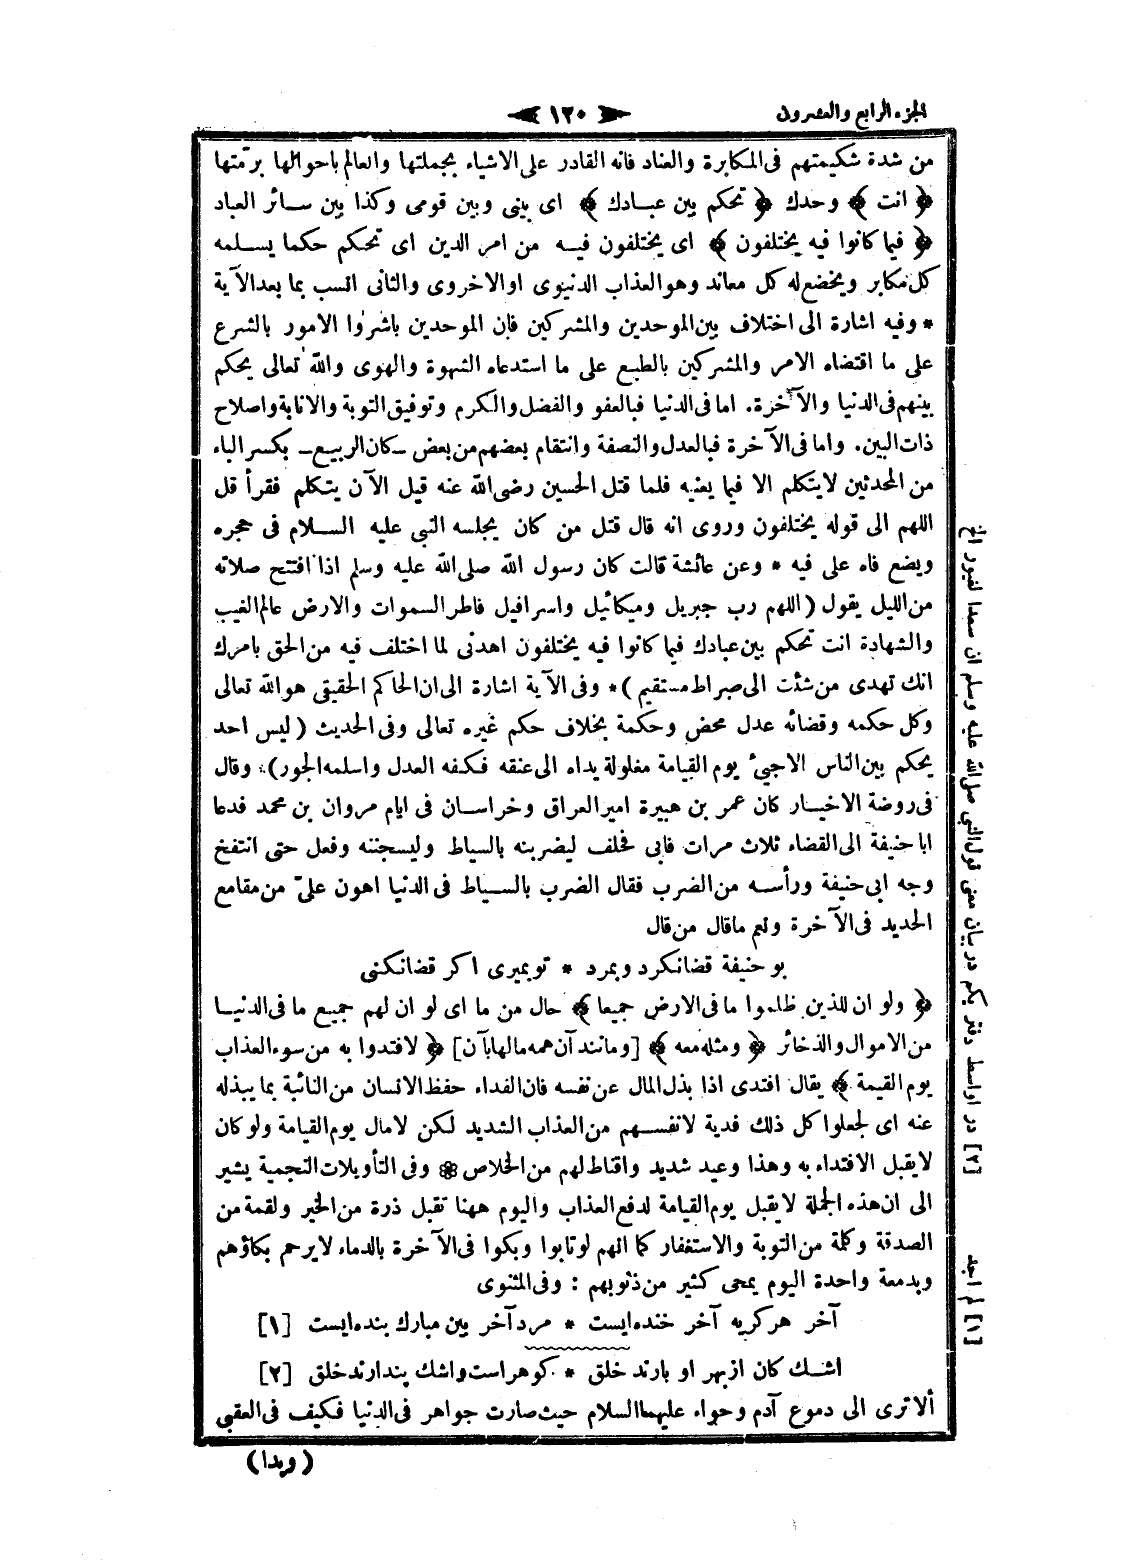 الجزء الرابع والعشرون
١٢٠
من شدة شكيمتهم فى المكابرة والعناد فانه القادر على الاشياء بجملتها والعالم باحوالها برمّتها
﴿ انت ﴾ وحدك ﴿ تحكم بين عبادك ﴾ اى بينى وبين قومى وكذا بين سائر العباد
﴿ فيما كانوا فيه يختلفون ﴾ اى يختلفون فيه من امر الدين اى تحكم حكما يسلمه
كل مكابر ويخضع له كل معاند وهو العذاب الدنيوى او الاخروى والثانى انسب بما بعد الآية
* وفيه اشارة الى اختلاف بين الموحدين والمشركين فإن الموحدين باشروا الامور بالشرع
على ما اقتضاه الامر والمشركين بالطبع على ما استدعاه الشهوة والهوى والله تعالى يحكم
بينهم فى الدنيا والآخرة. اما فى الدنيا فبالعفو والفضل والكرم وتوفيق التوبة والانابة واصلاح
ذات البين. واما فى الآخرة فبالعدل والنصفة وانتقام بعضهم من بعض ـ كان الربيع ـ بكسر الباء
من المحدثين لا يتكلم الا فيما يعنيه فلما قتل الحسين رضى الله عنه قيل الآن يتكلم فقرأ قل
اللهم الى قوله يختلفون وروى انه قال قتل من كان يجلسه النبي عليه السلام فى حجره
ويضع فاه على فيه * وعن عائشة قالت كان رسول الله صلى الله عليه وسلم اذا افتتح صلاته
من الليل يقول (اللهم رب جبريل وميكائيل واسرافيل فاطر السموات والارض عالم الغيب
والشهادة انت تحكم بين عبادك فيما كانوا فيه يختلفون اهدنى لما اختلف فيه من الحق بامرك
انك تهدى من شئت الى صراط مستقيم )* وفى الآية اشارة الى ان الحاكم الحقيقى هو الله تعالى
وكل حكمه وقضائه عدل محض وحكمة بخلاف حكم غيره تعالى وفى الحديث ( ليس احد
يحكم بين الناس الا جيئ يوم القيامة مغلولة يداه الى عنقه فكفه العدل واسلمه الجور). وقال
فى روضة الاخيار كان عمر بن هبيرة امير العراق وخراسان فى ايام مروان بن محمد فدعا
ابا حنيفة الى القضاء ثلاث مرات فابى فحلف ليضربنه بالسياط وليسجننه وفعل حتى انتفخ
وجه ابى حنيفة ورأسه من الضرب فقال الضرب بالسياط فى الدنيا اهون علىّ من مقامع
الحديد فى الآخرة ونعم ما قال من قال
بو حنيفة قضا نكرد وبمرد * تو بميرى اكر قضا نكنى
﴿ ولو ان للذين ظلموا ما فى الارض جميعا ﴾ حال من ما اى لو ان لهم جميع ما فى الدنيا
من الاموال والذخائر ﴿ ومثله معه ﴾ [ومانند آن همه مالها بآن] ﴿ لافتدوا به من سوء العذاب
يوم القيمة ﴾ يقال افتدى اذا بذل المال عن نفسه فان الفداء حفظ الانسان من النائبة بما يبذله
عنه اى لجعلوا كل ذلك فدية لانفسهم من العذاب الشديد لكن لا مال يوم القيامة ولو كان
لا يقبل الافتداء به وهذا وعيد شديد واقناط لهم من الخلاص * وفى التأويلات النجمية يشير
الى ان هذه الجملة لا يقبل يوم القيامة لدفع العذاب واليوم ههنا تقبل ذرة من الخير ولقمة من
الصدقة وكلمة من التوبة والاستغفار كما انهم لو تابوا وبكوا فى الآخرة بالدماء لا يرحم بكاؤهم
وبدمعة واحدة اليوم يمحى كثير من ذنوبهم : وفى المثنوى
آخر هر كريه آخر خنده ايست * مرد آخر بين مبارك بنده ايست [١]
اشك كان از بهر او بارند خلق * كوهراست واشك پندارند خلق [٢]
ألا ترى الى دموع آدم وحواء عليهما السلام حيث صارت جواهر فى الدنيا فكيف فى العقبى
( وبدا )
[١] لم اجد
[٢] در اواسط دفتر يكم در بيان معنى قول النبي صلى الله عليه وسلم ان سعدا لغيور الخ